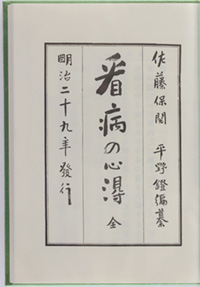 佐藤保閲 平野鐙編纂
看病の心得 全
明治二十九年發行